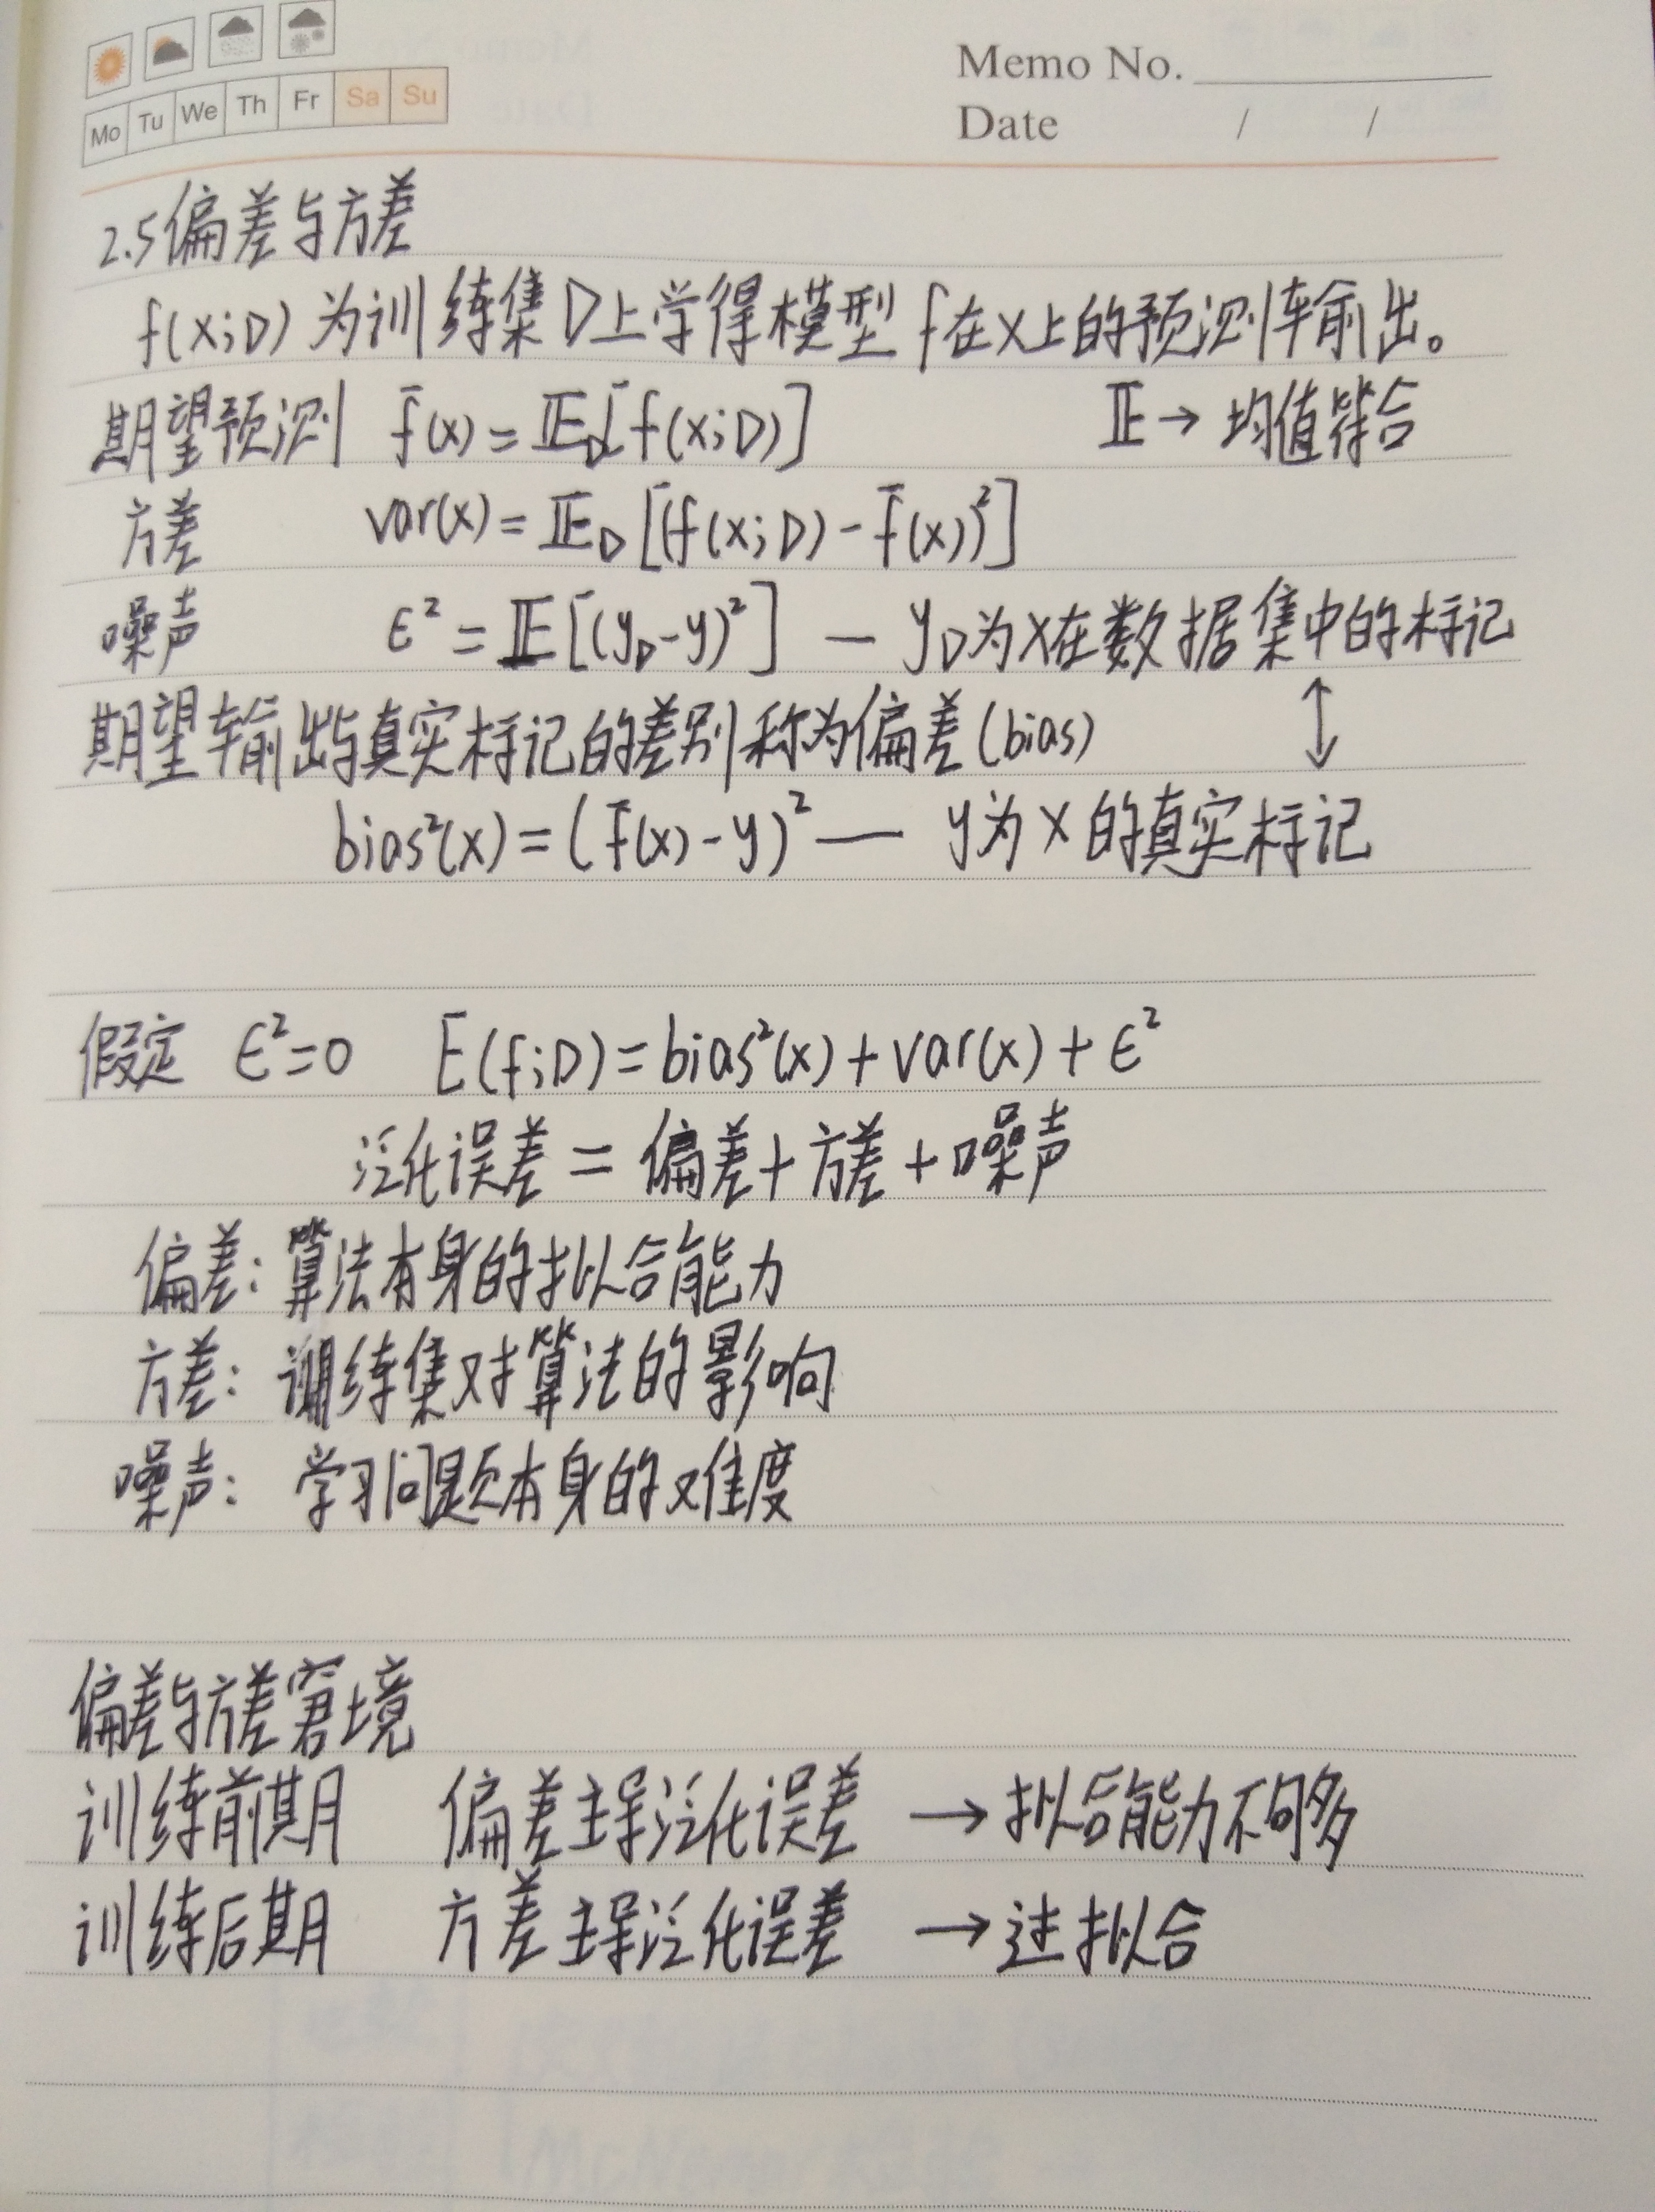 Memo No.
Mo Tu We Th Fr Sa Su
Date / /
2.5 偏差与方差
f(x;D) 为训练集D上学得模型 f在x上的预测输出。
期望预测 f̄(x) = 𝔼_D[f(x;D)] 𝔼 → 均值符合
方差 var(x) = 𝔼_D[(f(x;D) - f̄(x))²]
噪声 ε² = 𝔼[(y_D - y)²] — y_D为x在数据集中的标记
期望输出与真实标记的差别称为偏差(bias) ↕
bias²(x) = (f̄(x) - y)² — y为x的真实标记
假定 ε²=0 E(f;D) = bias²(x) + var(x) + ε²
泛化误差 = 偏差 + 方差 + 噪声
偏差: 算法本身的拟合能力
方差: 训练集对算法的影响
噪声: 学习问题本身的难度
偏差与方差窘境
训练前期 偏差主导泛化误差 → 拟合能力不够多
训练后期 方差主导泛化误差 → 过拟合